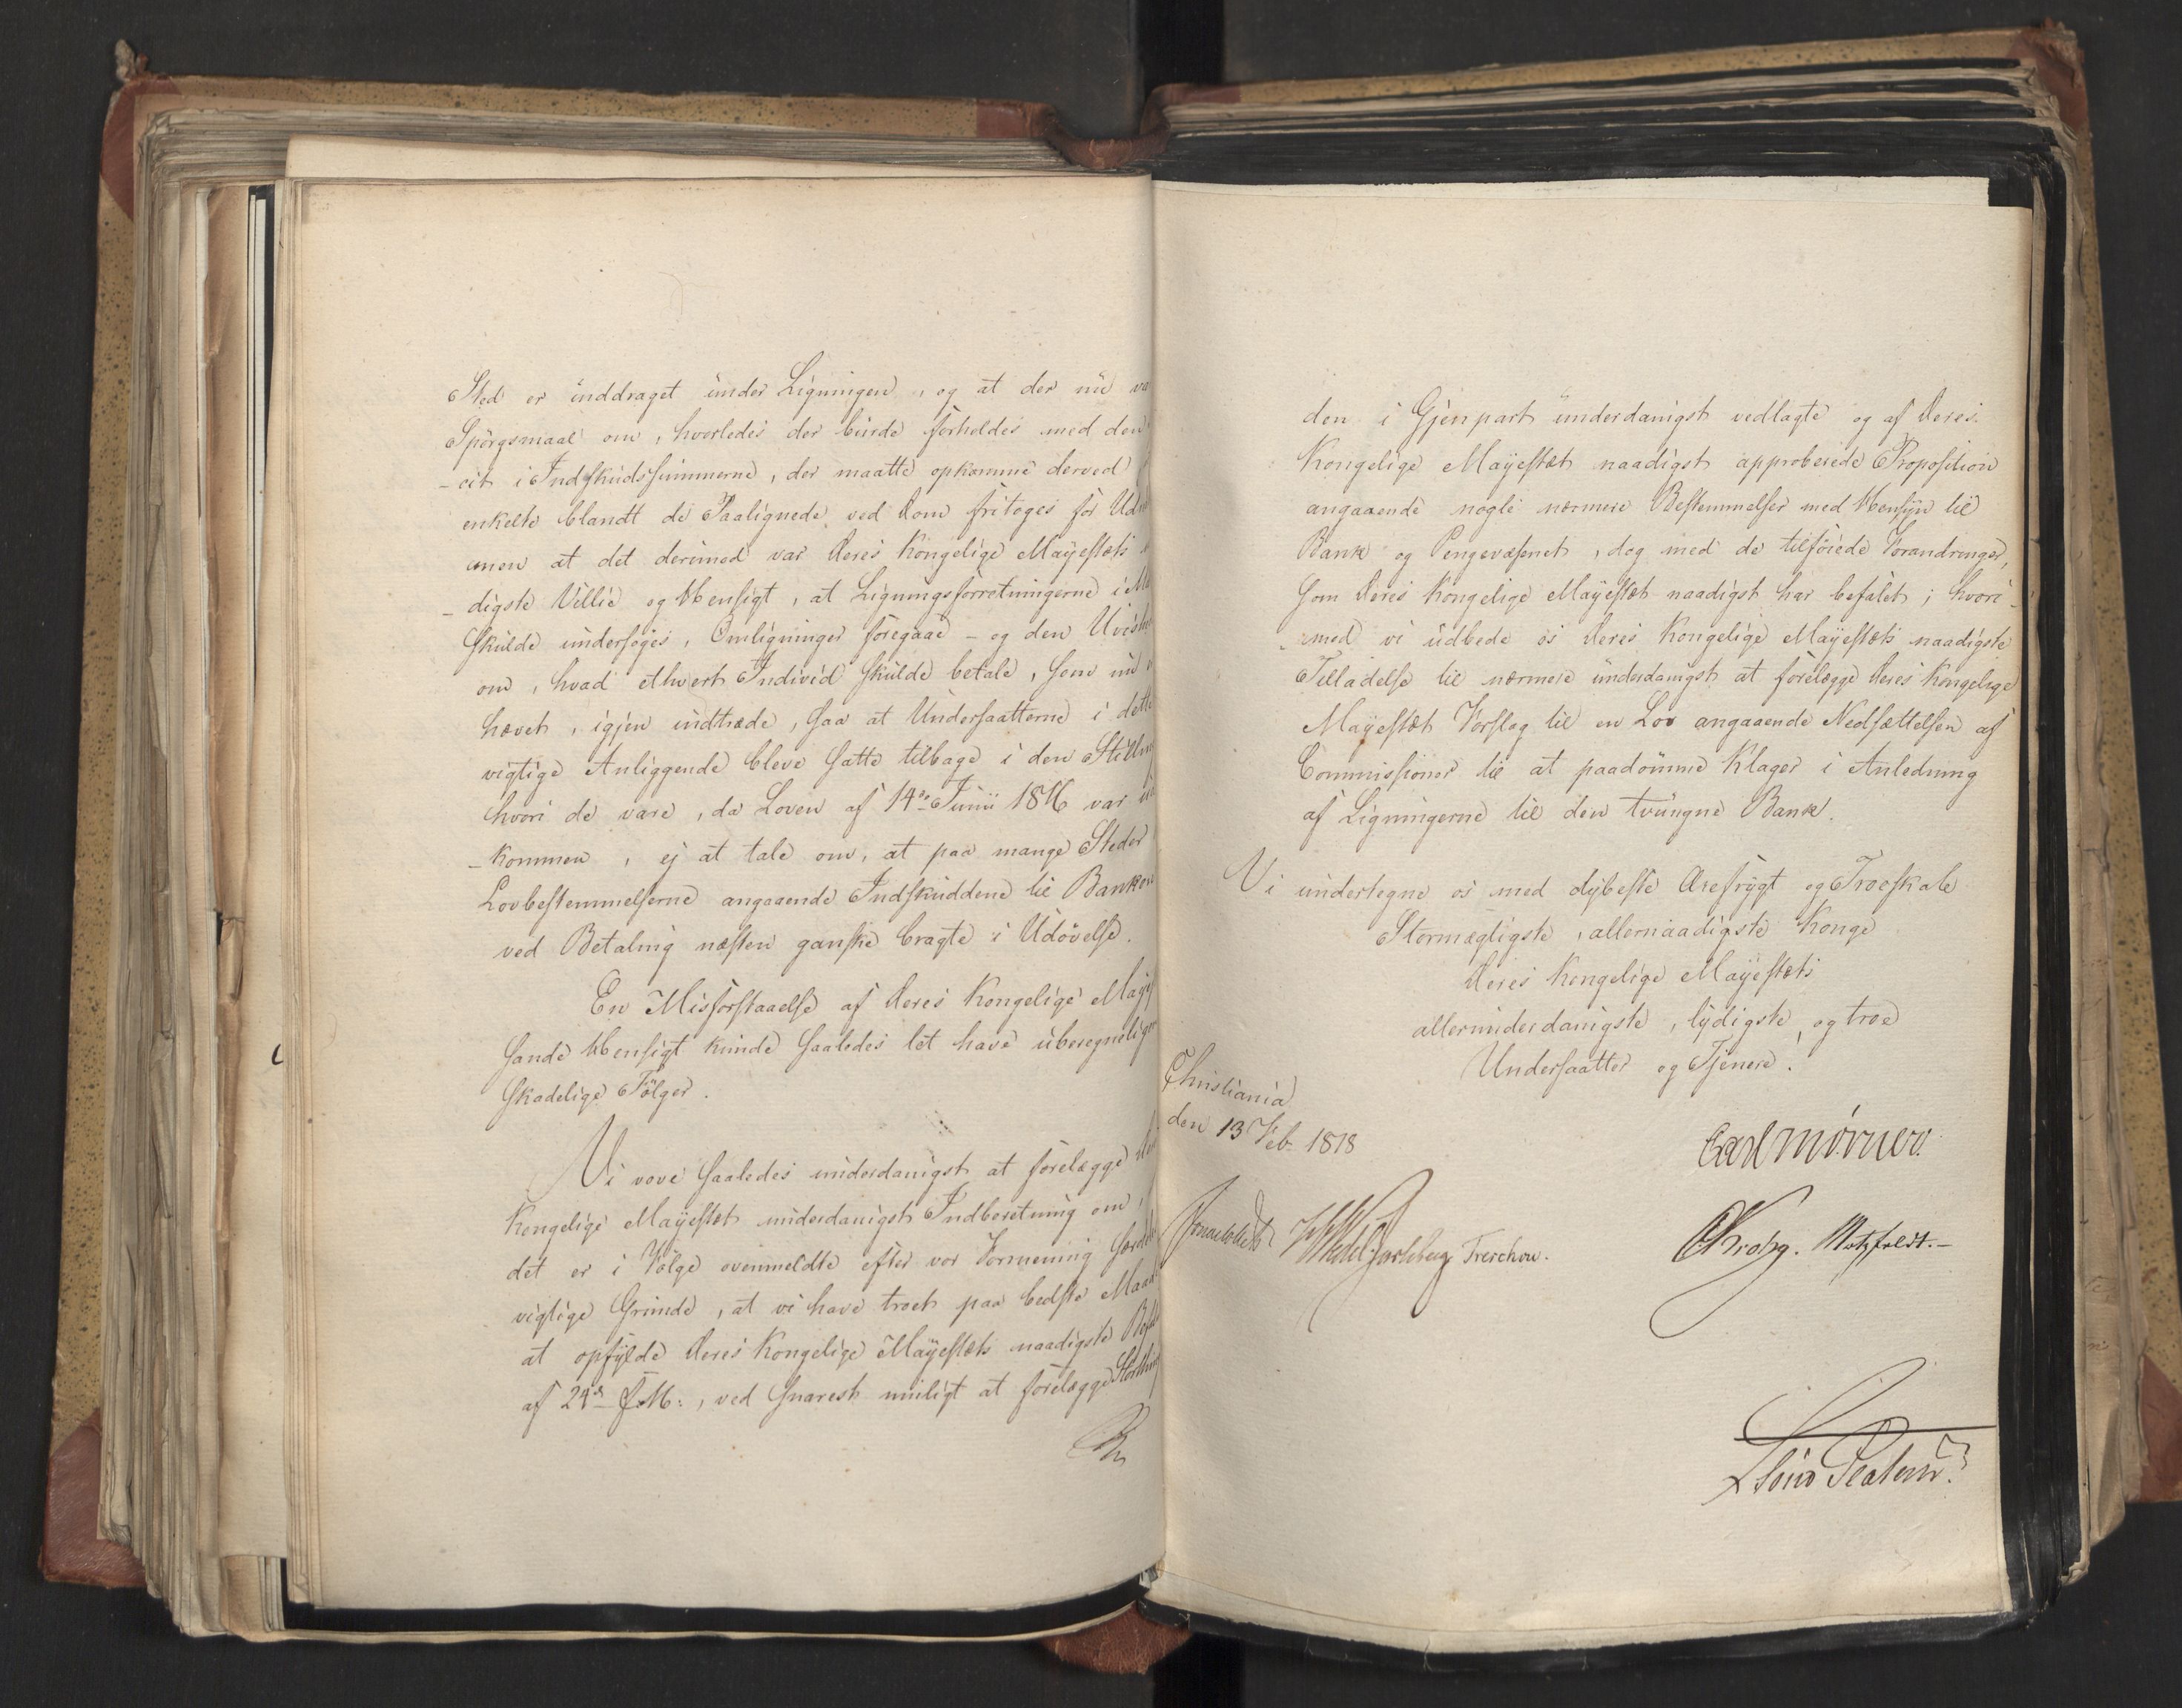 Sted er inddraget under Ligningen, og at der nu va
Spörgsmaal om, hvorledes der burde forholdes med den
-cit i Indskudssummerne, der maatte opkomme derved
enkelte blandt de Paalignede ved Dom fritoges for Ud
men at det derimod var Deres Kongelige Mayestæts
-digste Villie og Hensigt, at Ligningsforretningerne i
skulde undersöges, Omligninger foregaae - og den Uvish
om, hvad ethvert Individ skulde betale, som nu
hævet, igjen indtræde, saa at Undersaatterne i dette
vigtige Anliggende bleve satte tilbage i den Stilling
hvori de vare, da Loven af 14de Junii 1816 var ud
-kommen, ej at tale om, at paa mange Steder
Lovbestemmelserne angaaende Indskuddene til Banken
ved Betaling næsten ganske bragte i Udövelse.
En Misforstaaelse af Deres Kongelige Mayes
sande Hensigt kunde saaledes let have uberegnelige
skadelige Fölger.
Vi vove saaledes underdanigst at forelægge
Kongelige Mayestæt underdanigst Indberetning om,
det er i Fölge ovenmeldte efter vor Formening
vigtige Grunde, at vi have troet paa bedste Maade
at opfylde Deres Kongelige Mayestæts naadigste
af 24de f.M:, ved snarest muligt at forelægge Storthing
den i Gjenpart underdanigst vedlagte og af Deres
Kongelige Mayestæt naadigst approberede Proposition
angaaende nogle nærmere Bestemmelser med Hensyn til
Bank og Pengevæsenet, dog med de tilföiede Forandringer,
som Deres Kongelige Mayestæt naadigst har befalet; hvori-
-med vi udbede os Deres Kongelige Mayestæts naadigste
Tilladelse til nærmere underdanigst at forelægge Deres Kongelige
Mayestæt Forslag til en Lov angaaende Nedsættelsen af
Commissioner til at paadömme Klager i Anledning
af Ligningerne til den tvungne Bank.
Vi undertegne os med dybeste Ærefrygt og Troeskab
Stormægtigste, allernaadigste Konge
Deres Kongelige Mayestæts
allerunderdanigste, lydigste og troe
Undersaatter og Tjenere.
Christiania
den 13 Feb. 1818
Carl Mörner.
Jonas Collett Wedel Jarlsberg Treschow. Krohg. Motzfeldt.